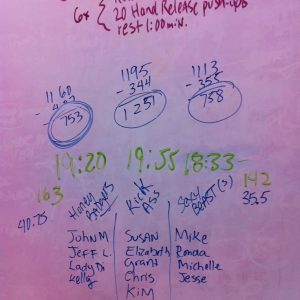 6x
20 Hand Release push-ups
rest 1:00 min.
1160
753
1195
- 344
1251
1113
- 355
758
19:20 19:55 18:33
163
40.75
142
35.5
Honey
Badgers
Kick
Ass
Sexy
Beast(s)
John M.
Jeff L.
Lady Di
Kelly
Susan
Elizabeth
Grant
Chris
Kim
Mike
Ronda
Michelle
Jesse